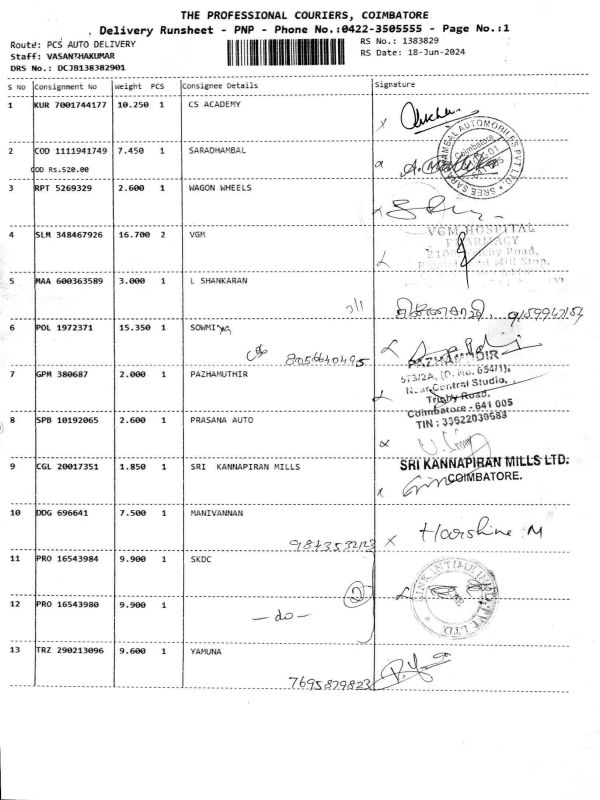 THE PROFESSIONAL COURIERS, COIMBATORE
Delivery Runsheet - PNP - Phone No.:0422-3505555 - Page No.:1
Route: PCS AUTO DELIVERY
RS No.: 1383829
Staff: VASANTHAKUMAR
RS Date: 18-Jun-2024
DRS No.: DCJB138382901
S No Consignment No Weight PCS Consignee Details Signature
1 KUR 7001744177 10.250 1 CS ACADEMY
2 COD 1111941749 7.450 1 SARADHAMBAL
COD Rs.520.00
SREE SARADHAMBAL AUTOMOBILES PVT LTD
Coimbatore
3 RPT 5269329 2.600 1 WAGON WHEELS
4 SLM 348467926 16.700 2 VGM
VGM HOSPITAL
PHARMACY
Road,
Stop,
5 MAA 600363589 3.000 1 L SHANKARAN
6 POL 1972371 15.350 1 SOWMIya
8056640495
7 GPM 380687 2.000 1 PAZHAMUTHIR
PAZHAMUDIR
573/2A, (P. No. 654/1),
Near Central Studio,
Trichy Road,
Coimbatore - 641 005
TIN : 33522039583
8 SPB 10192065 2.600 1 PRASANA AUTO
9 CGL 20017351 1.850 1 SRI KANNAPIRAN MILLS
SRI KANNAPIRAN MILLS LTD.
COIMBATORE.
10 DDG 696641 7.500 1 MANIVANNAN
9843532123 x Harishine M
11 PRO 16543984 9.900 1 SKDC
2
12 PRO 16543980 9.900 1
- do -
LINK INTIME INDIA PVT LTD.
13 TRZ 290213096 9.600 1 YAMUNA
7695879823